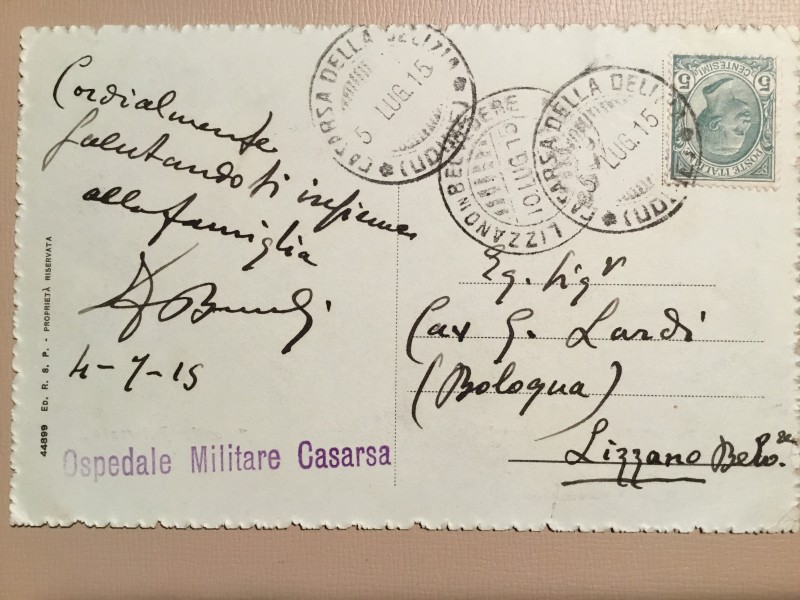 Cordialmente
Salutandoti insieme
alla famiglia
4-7-15
Ospedale Militare Casarsa
44899 ED. R. S. P. - PROPRIETÀ RISERVATA
CASARSA DELLA DELIZIA (UDINE)
5 LUG.15
LIZZANO IN BELVEDERE
10 LUG 15
CASARSA DELLA DELIZIA (UDINE)
5 LUG.15
POSTE ITALIANE
CENTESIMI
5 5
Eg. Sigr
Cav G. Lardi
(Bologna)
Lizzano Belv.